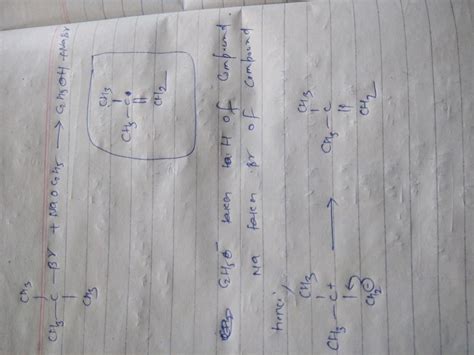 CH3
CH3 - C - Br + NaOC2H5 → C2H5OH + NaBr
CH3
CH3
CH3 - C
CH2
C2H5O⁻ taken H of Compound.
Na taken Br of Compound
hence,
CH3 CH3
CH3 - C+ → CH3 - C
CH2⊖ CH2